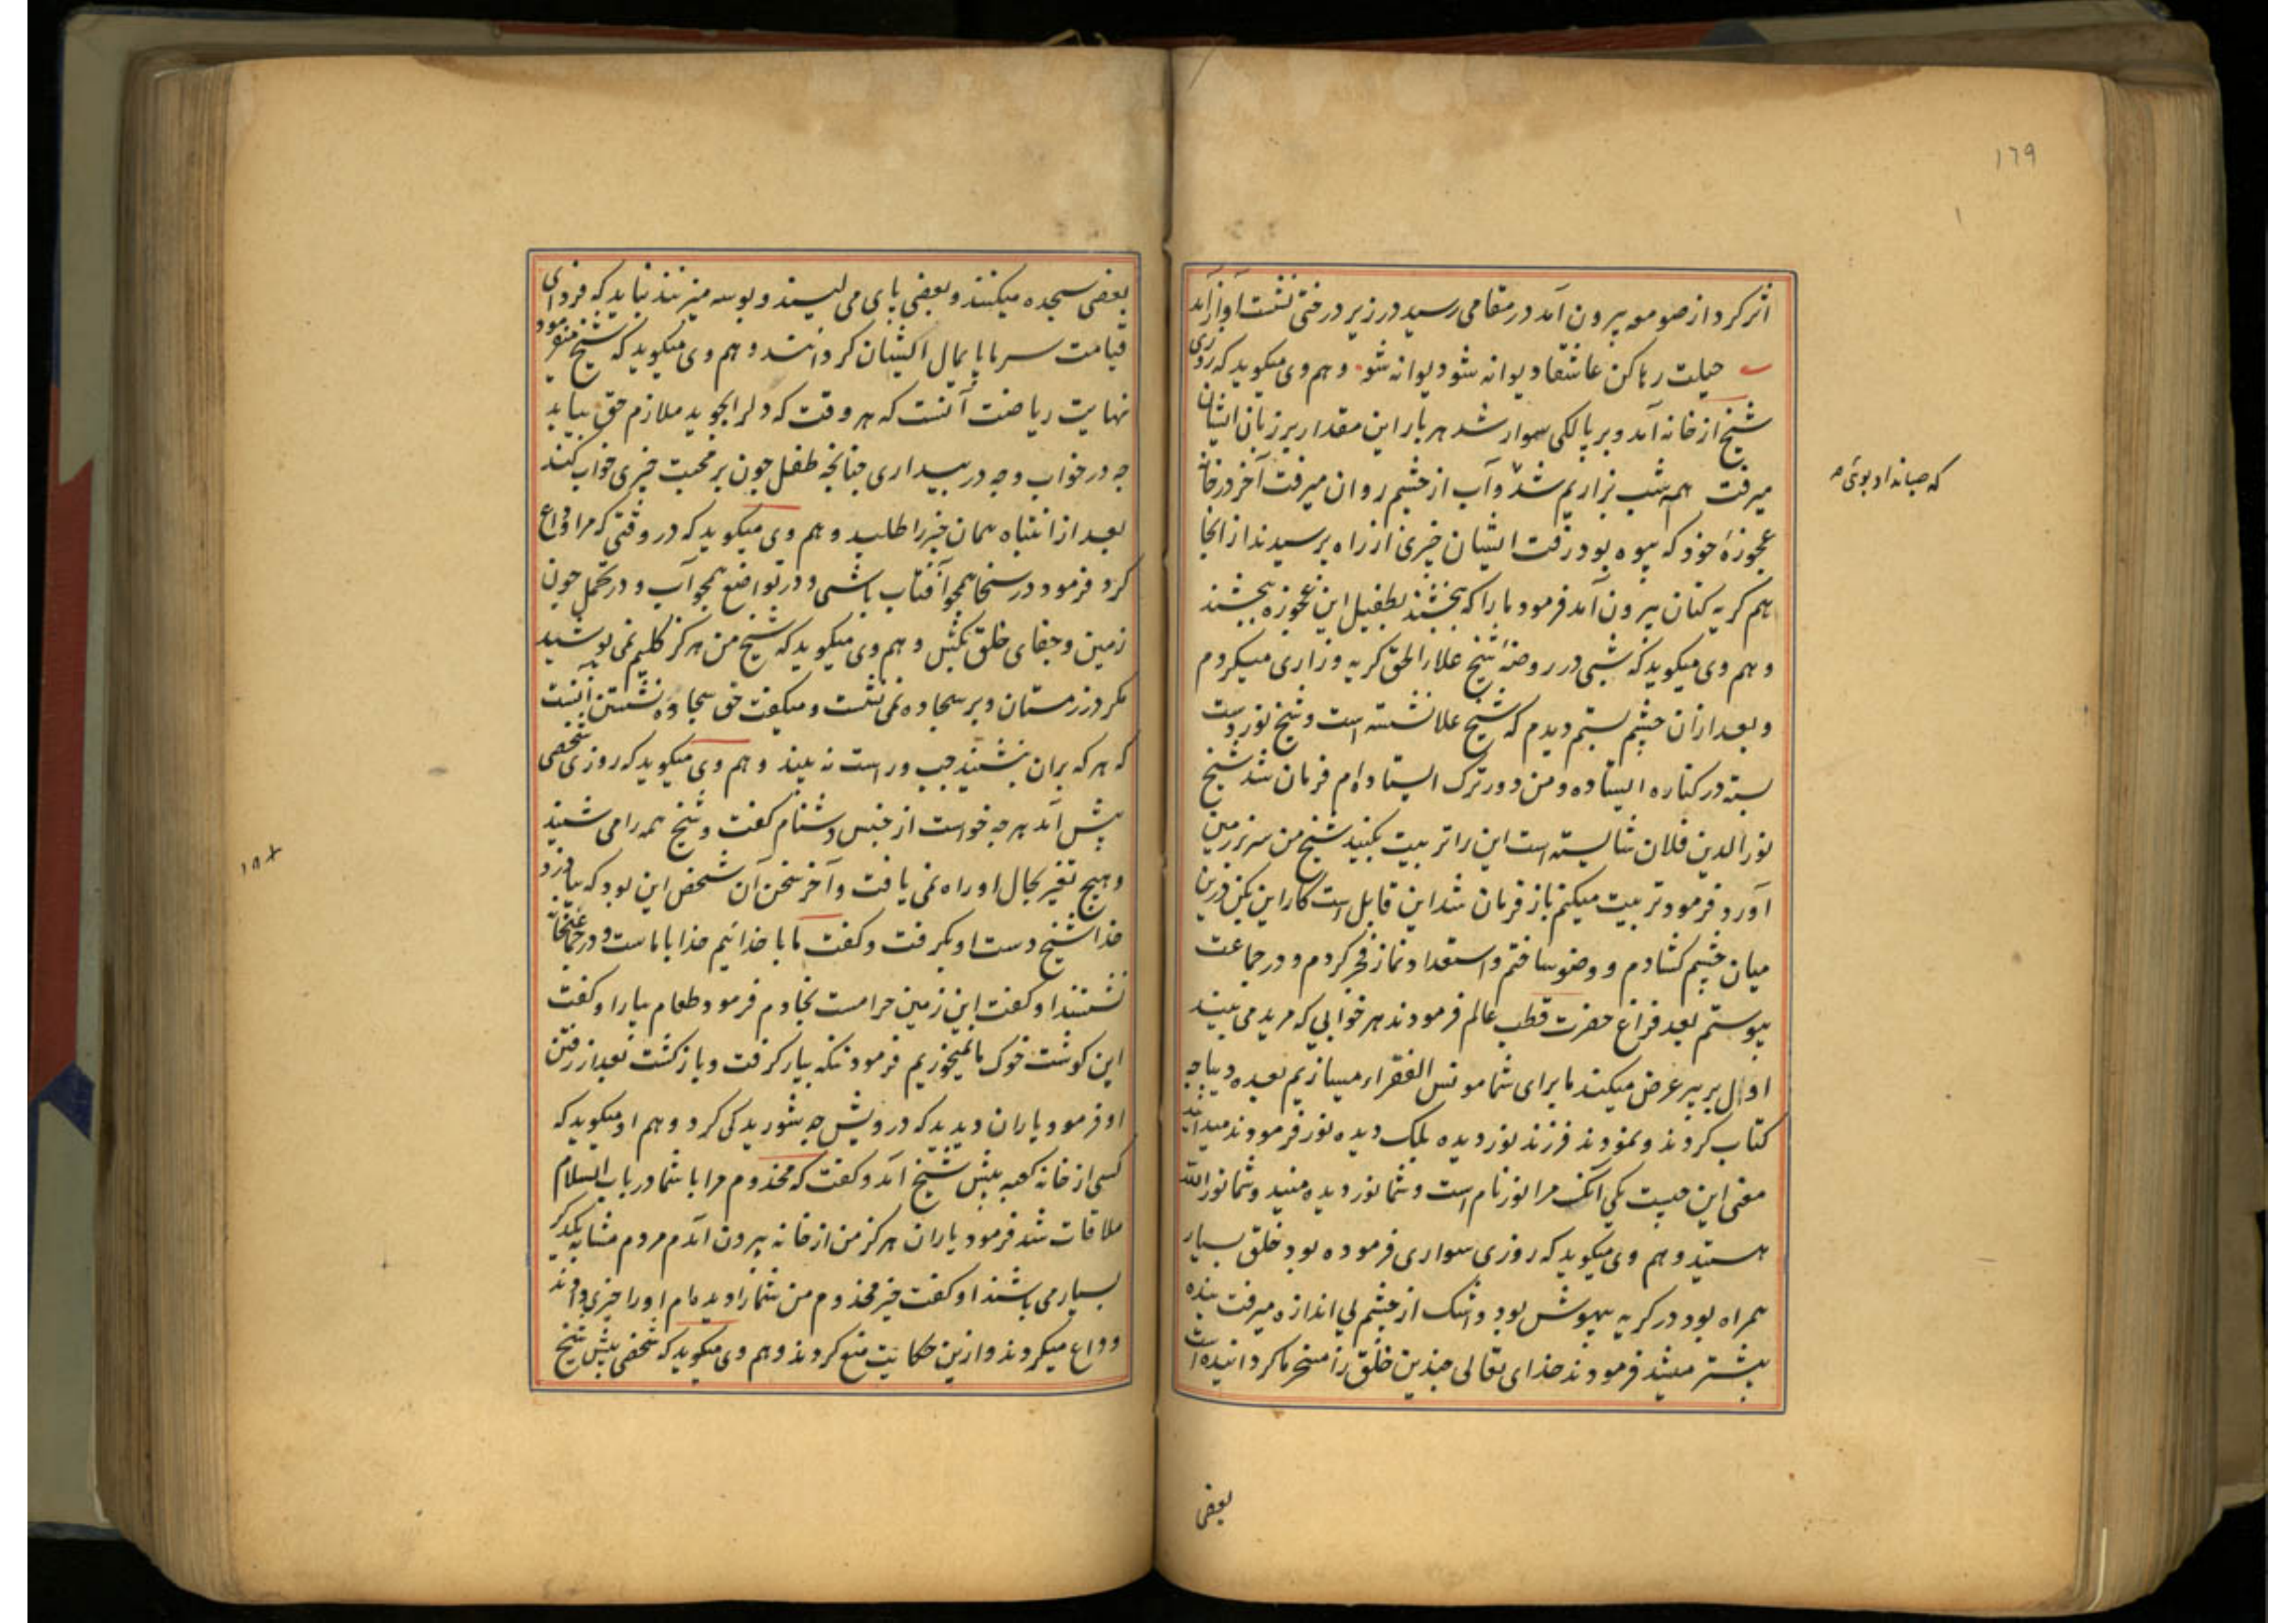 ١٦٩
اثر کرد از صومعه بیرون آمد در مقامی رسید در زیر درختی نشست آواز آمد
حیلت رها کن عاشقا دیوانه شو دیوانه شو وهم وی میکوید که روزی
شیخ از خانه آمد و بر پالکی سوار شد هر بار این مقدار بر زبان ایشان
میرفت همه شب بزاریم شد و آب از چشم روان میرفت آخر در خانهٔ
که صبا نداد بوئی
عجوزهٔ خود که بیوه بود رفت ایشان چیزی از راه پرسیدند از انجا
هم کریه کنان بیرون آمد فرمود ما را که بخشند بطفیل این عجوزه بخشند
و هم وی میکوید که شبی در روضهٔ شیخ علاء الحق کریه و زاری میکردم
و بعد ازان چشم بستم دیدم که شیخ علا نشسته است و شیخ نور دست
بسته در کناره ایستاده و من دورترک ایستاده ام فرمان شد شیخ
نور الدین فلان شایسته است این را تربیت بکنید شیخ من سر بر زمین
آورد و فرمود تربیت میکنم باز فرمان شد این قابل است کار این بکن درین
میان چشم کشادم و وضو ساختم و استعداد نماز فجر کردم و در جماعت
پیوستم بعد فراغ حضرت قطب عالم فرمودند هر خوابی که مرید می بیند
اول بر پیر عرض میکند ما برای شما مونس الفقراء میسازیم بعده دیباجه
کتاب کردند و نمودند فرزند نور دیده بلک دیده نور فرمودند میدانید
معنی این چیست یکی آنک مرا نور نام است و شما نور دیده منید و شما نور الله
هستید و هم وی میکوید که روزی سواری فرموده بود خلق بسیار
همراه بود در کریه بیهوش بود و اشک از چشم بی اندازه میرفت بنده
بیشتر میشد فرمودند خدای تعالی چندین خلق را مسخر ما کردانیده است
بعضی
بعضی سجده میکنند و بعضی پای می لیسند و بوسه میزنند نباید که فردای
قیامت سر ما پایمال اکیشان کردانند و هم وی میکوید که شیخ میفرمود
نهایت ریاضت آنست که هر وقت که دلرا بجوید ملازم حق بیابد
چه در خواب و چه در بیداری چنانچه طفل چون بر محبت چیزی خواب کند
بعد از انتباه همان چیز را طلبد و هم وی میکوید که در وقتی که مرا وداع
کرد فرمود در سخا همچو آفتاب باشی و در تواضع همچو آب و در تحمل چون
زمین و جفای خلق بکش و هم وی میکوید که شیخ من هرکز کلیم نمی پوشید
مکر در زمستان و بر سجاده نمی نشست و میکفت حق سجاده نشستن آنست
که هر که بران بنشیند چپ و راست نه بیند و هم وی میکوید که روزی شخصی
پیش آمد هر چه خواست از جنس دشنام کفت و شیخ همه را می شنید
و هیچ تغیر بحال او راه نمی یافت و آخر سخن آن شخص این بود که بیا دزد
خدا شیخ دست او بکرفت و کفت ما با خدائیم خدا با ماست و در جماعتخانه
نشستند او کفت این زمین حرامست بخادم فرمود طعام بیار او کفت
این کوشت خوک ما نمیخوریم فرمود تنکه بیار کرفت و باز کشت بعد از رفتن
او فرمود یاران دیدید که درویش چه شوریدکی کرد و هم او میکوید که
کسی از خانه کعبه پیش شیخ آمد و کفت که مخدوم مرا با شما در باب السلام
ملاقات شد فرمود یاران هرکز من از خانه بیرون آمدم مردم مشابه یکدیکر
بسیار می باشند او کفت خیر مخدوم من شما را دیده ام او را چیزی دادند
وداع میکردند و ازین حکایت منع کردند و هم وی میکوید که شخصی پیش شیخ